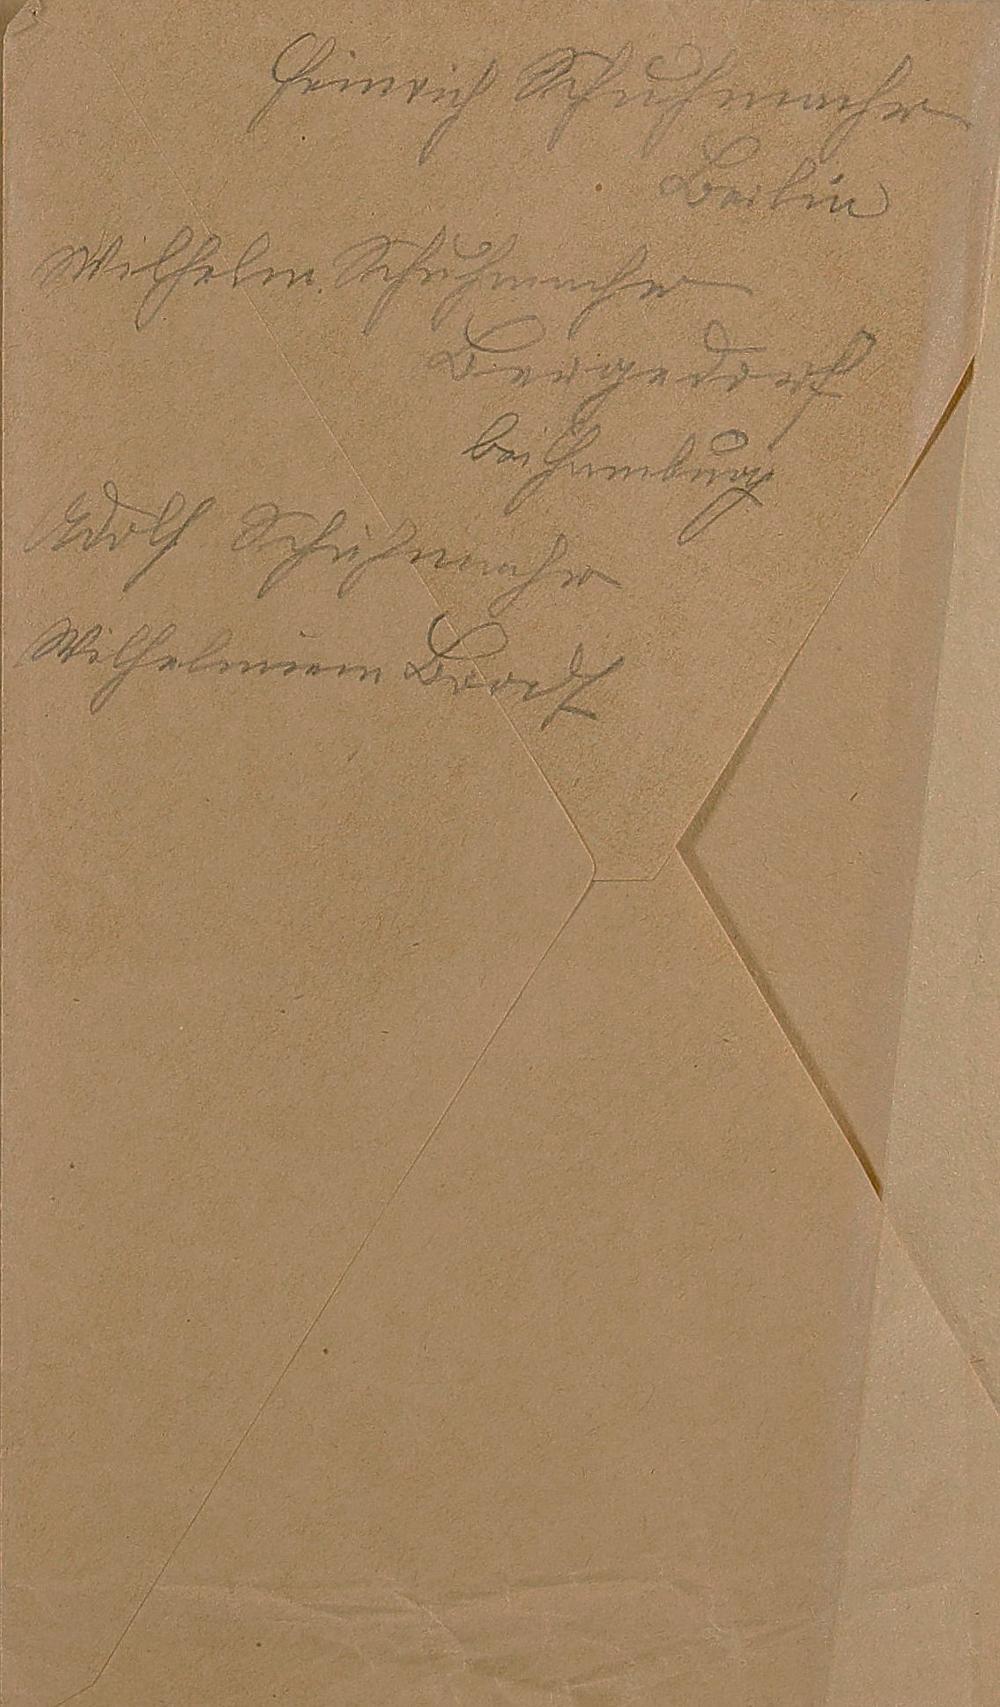 Heinrich Schuhmacher
Berlin
Wilhelm Schuhmacher
Bergedorf
bei Hamburg
Adolf Schuhmacher
Wilhelmiem